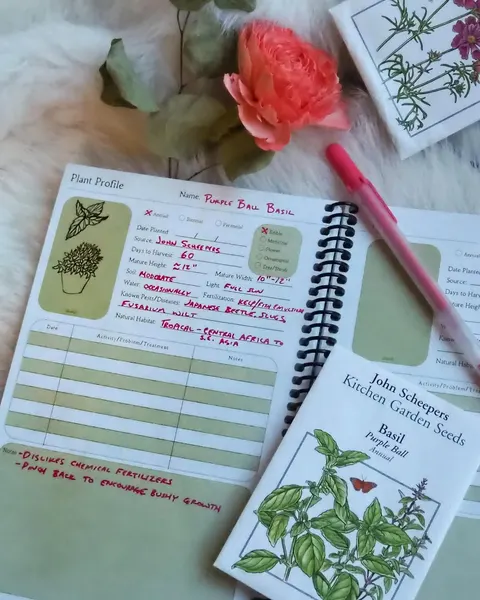 Plant Profile
Name: PURPLE BALL BASIL
X Annual Biennial Perennial
Date Planted: / /
Source: JOHN SCHEEPERS
Days to Harvest: 60
Mature Height: ≈12" Mature Width: 10"-12"
Soil: MODERATE Light: FULL SUN
Water: OCCASIONALLY Fertilization: KELP/FISH EMULSION
Known Pests/Diseases: JAPANESE BEETLE, SLUGS,
FUSARIUM WILT
Natural Habitat: TROPICAL - CENTRAL AFRICA TO
S.E. ASIA
X Edible
Medicine
Flower
Ornamental
Date Activity/Problem/Treatment Notes
Notes: -DISLIKES CHEMICAL FERTILIZERS
-PINCH BACK TO ENCOURAGE BUSHY GROWTH
Date Planted
Source:
Days to Harv
Mature Heig
Soil:
Water:
Known Pest
Activity/Prob
John Scheepers
Kitchen Garden Seeds
Basil
Purple Ball
Annual